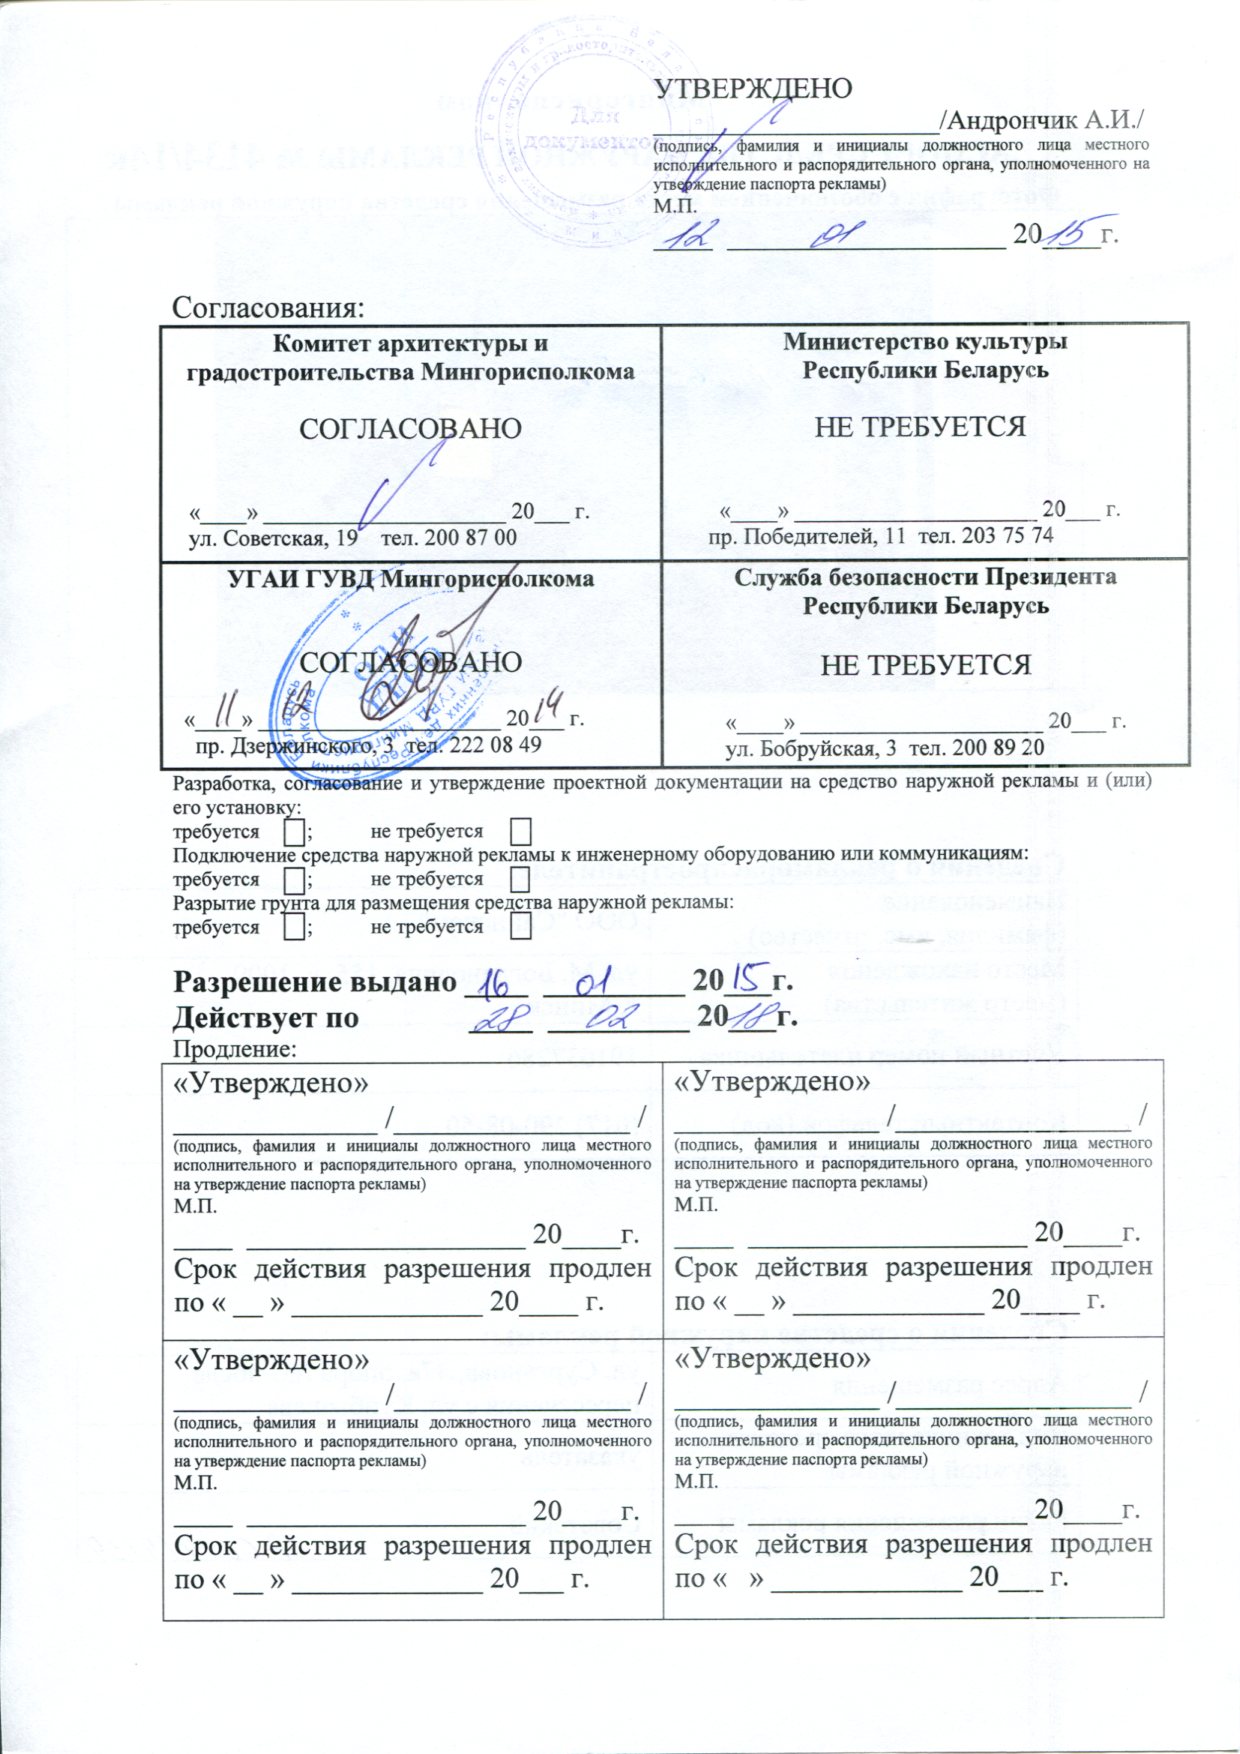 УТВЕРЖДЕНО
____________________/Андрончик А.И./
(подпись, фамилия и инициалы должностного лица местного
исполнительного и распорядительного органа, уполномоченного на
утверждение паспорта рекламы)
М.П.
12 01 2015 г.
Для
документов
Согласования:
Комитет архитектуры и
градостроительства Мингорисполкома
СОГЛАСОВАНО
«____» ____________________ 20___ г.
ул. Советская, 19 тел. 200 87 00
Министерство культуры
Республики Беларусь
НЕ ТРЕБУЕТСЯ
«____» ____________________ 20___ г.
пр. Победителей, 11 тел. 203 75 74
УГАИ ГУВД Мингорисполкома
СОГЛАСОВАНО
«11» 12 2014 г.
пр. Дзержинского, 3 тел. 222 08 49
Служба безопасности Президента
Республики Беларусь
НЕ ТРЕБУЕТСЯ
«____» ____________________ 20___ г.
ул. Бобруйская, 3 тел. 200 89 20
Разработка, согласование и утверждение проектной документации на средство наружной рекламы и (или)
его установку:
требуется ; не требуется
Подключение средства наружной рекламы к инженерному оборудованию или коммуникациям:
требуется ; не требуется
Разрытие грунта для размещения средства наружной рекламы:
требуется ; не требуется
Разрешение выдано 16 01 2015 г.
Действует по 28 02 2018 г.
Продление:
«Утверждено»
______________ /________________ /
(подпись, фамилия и инициалы должностного лица местного
исполнительного и распорядительного органа, уполномоченного
на утверждение паспорта рекламы)
М.П.
____ ___________________ 20____г.
Срок действия разрешения продлен
по « __ » _____________ 20____ г.
«Утверждено»
______________ /________________ /
(подпись, фамилия и инициалы должностного лица местного
исполнительного и распорядительного органа, уполномоченного
на утверждение паспорта рекламы)
М.П.
____ ___________________ 20____г.
Срок действия разрешения продлен
по « __ » _____________ 20____ г.
«Утверждено»
______________ /________________ /
(подпись, фамилия и инициалы должностного лица местного
исполнительного и распорядительного органа, уполномоченного
на утверждение паспорта рекламы)
М.П.
____ ___________________ 20____г.
Срок действия разрешения продлен
по « __ » _____________ 20___ г.
«Утверждено»
______________ /________________ /
(подпись, фамилия и инициалы должностного лица местного
исполнительного и распорядительного органа, уполномоченного
на утверждение паспорта рекламы)
М.П.
____ ___________________ 20____г.
Срок действия разрешения продлен
по « » _____________ 20___ г.